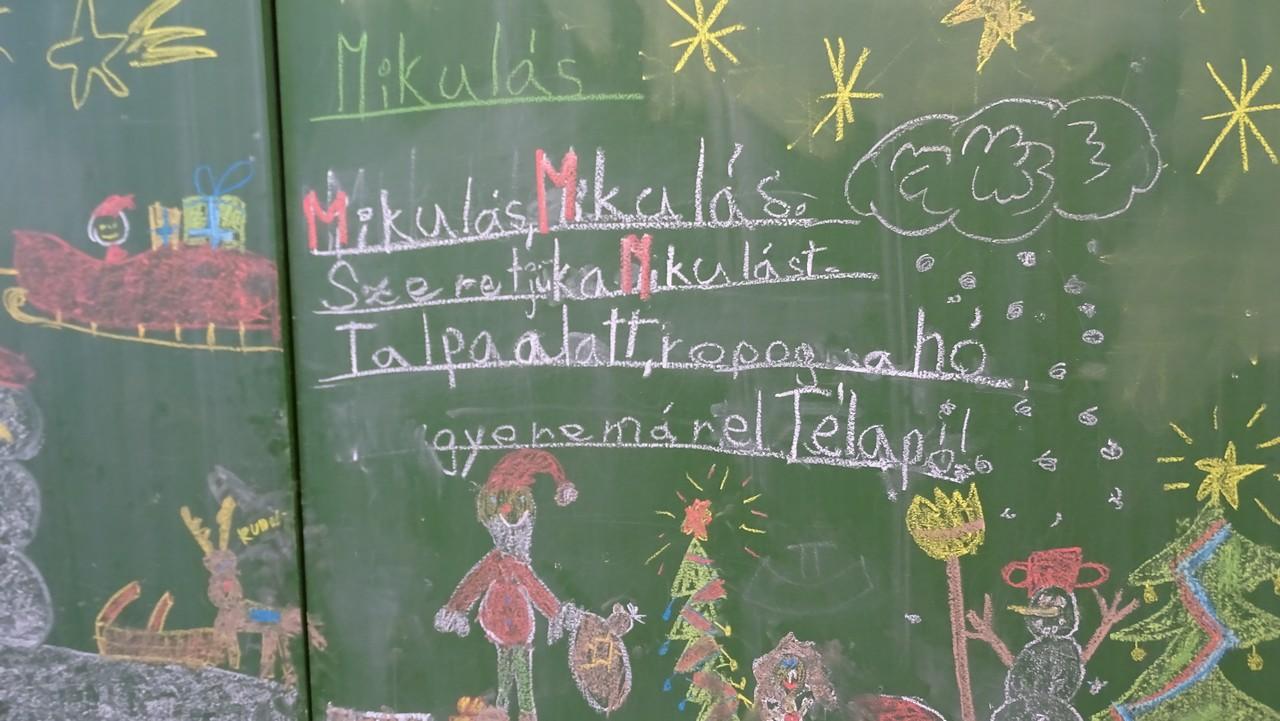 Mikulás
Mikulás, Mikulás.
Szeretjük a Mikulást.
Talpa alatt, ropog a hó
gyere már el Télapó!
RUDI